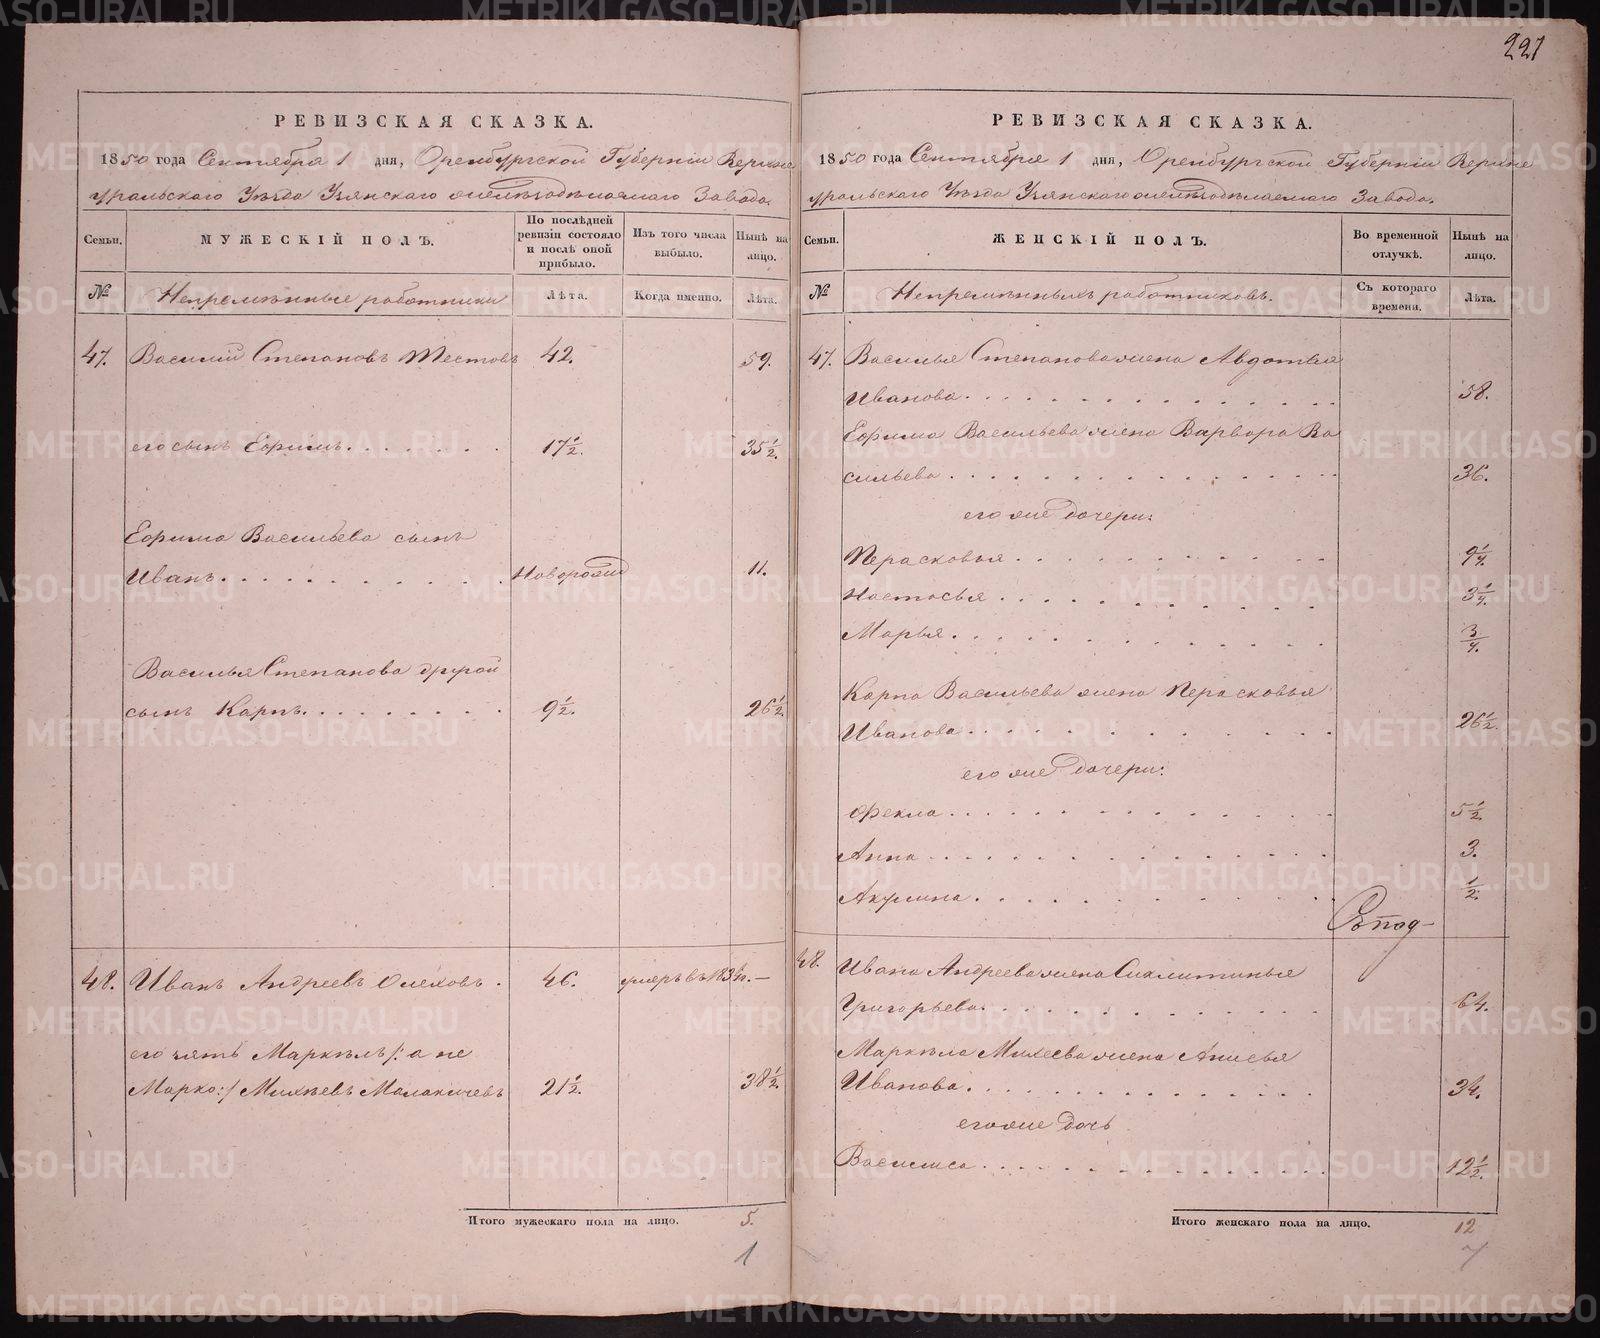 221
РЕВИЗСКАЯ СКАЗКА.
1850 года Сентября 1 дня, Оренбургской Губерніи Верхне
уральскаго Уѣзда Узянскаго желѣзодѣлаемаго Завода.
Семьи.
МУЖЕСКІЙ ПОЛЪ.
По послѣдней ревизіи состояло и послѣ оной прибыло.
Изъ того числа выбыло.
Нынѣ на лицо.
№
Непремѣнные работники
Лѣта.
Когда именно.
Лѣта.
47. Василій Степановъ Шестовъ 42. 59.
его сынъ Ефимъ 17½. 35½.
Ефима Васильева сынъ
Иванъ Новорожд 11.
Василья Степанова другой
сынъ Карпъ 9½. 26½.
48. Иванъ Андреевъ 46. умеръ въ 1834 —
его зять Маркѣлъ /: а не
Марко :/ Михѣевъ 21½. 38½.
Итого мужескаго пола на лицо. 5.
1
РЕВИЗСКАЯ СКАЗКА.
1850 года Сентября 1 дня, Оренбургской Губерніи Верхне
уральскаго Уѣзда Узянскаго желѣзодѣлаемаго Завода.
Семьи.
ЖЕНСКІЙ ПОЛЪ.
Во временной отлучкѣ.
Нынѣ на лицо.
№
Непремѣнныхъ работниковъ.
Съ котораго времени.
Лѣта.
47. Василья Степанова жена Авдотья
Иванова 58.
Ефима Васильева жена Варвора Ва
сильева 36.
его же дочери:
Перасковья 9¼.
Настасья 3¼.
Марья ¾.
Карпа Васильева жена Перасковья
Иванова 26½.
его же дочери:
Фекла 5½.
Анна 3.
Акулина ½.
48. Ивана Андреева жена
Григорьева 64.
Маркѣла Михеева жена Анисья
Иванова 34.
его же дочь
Василиса 12½.
Итого женскаго пола на лицо. 12
7
METRIKI.GASO-URAL.RU